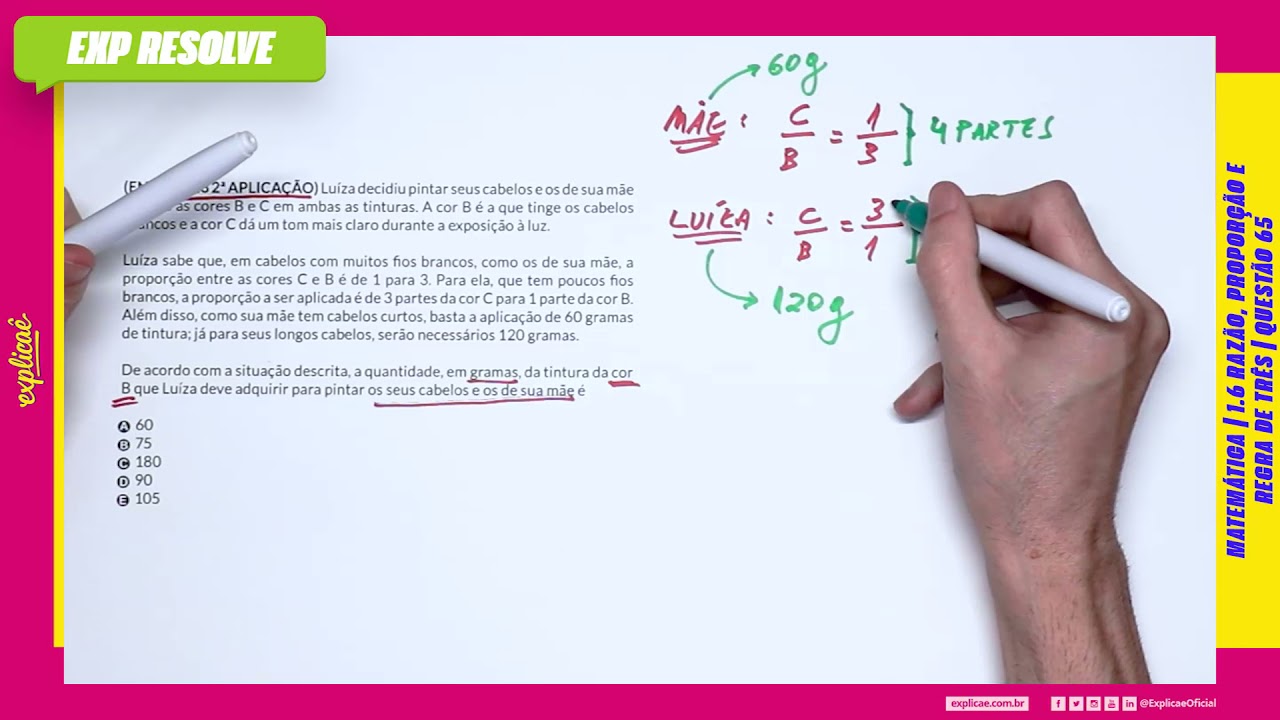 EXP RESOLVE
2ª APLICAÇÃO) Luíza decidiu pintar seus cabelos e os de sua mãe
as cores B e C em ambas as tinturas. A cor B é a que tinge os cabelos
e a cor C dá um tom mais claro durante a exposição à luz.
Luíza sabe que, em cabelos com muitos fios brancos, como os de sua mãe, a
proporção entre as cores C e B é de 1 para 3. Para ela, que tem poucos fios
brancos, a proporção a ser aplicada é de 3 partes da cor C para 1 parte da cor B.
Além disso, como sua mãe tem cabelos curtos, basta a aplicação de 60 gramas
de tintura; já para seus longos cabelos, serão necessários 120 gramas.
De acordo com a situação descrita, a quantidade, em gramas, da tintura da cor
B que Luíza deve adquirir para pintar os seus cabelos e os de sua mãe é
A 60
B 75
C 180
D 90
E 105
60g
MÃE : C/B = 1/3 } 4 PARTES
LUÍZA : C/B = 3/1
120g
explicaê
MATEMÁTICA | 1.6 RAZÃO, PROPORÇÃO E
REGRA DE TRÊS | QUESTÃO 65
explicae.com.br
@ExplicaeOficial